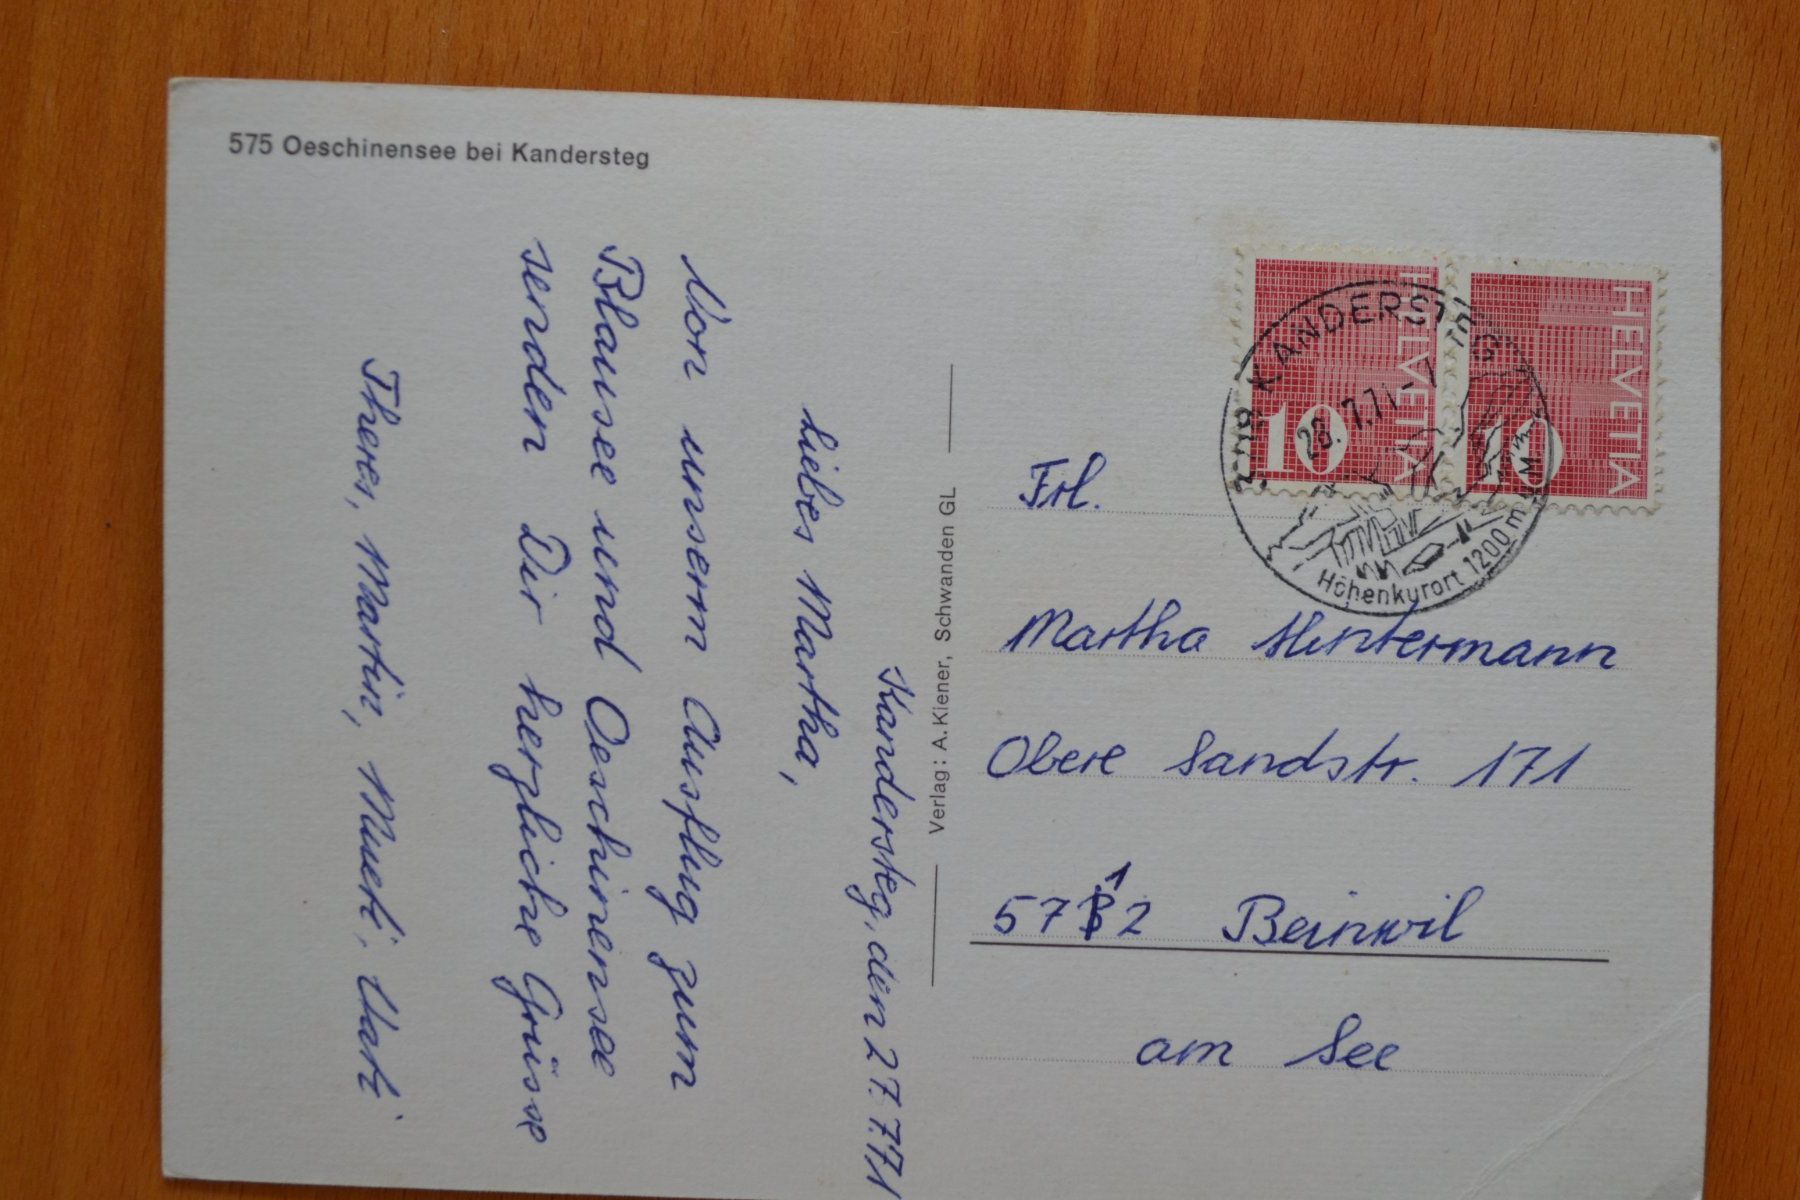 575 Oeschinensee bei Kandersteg
Kandersteg, den 27.7.71
Liebes Martha,
Von unserm Ausflug zum
Blausee und Oeschinensee
senden Dir herzliche Grüsse
Theres, Martin, Mueti, Vati
Verlag: A. Kiener, Schwanden GL
HELVETIA
10
HELVETIA
10
3718 KANDERSTEG
28.7.71-7
Höhenkurort 1200m
Frl.
Martha Hintermann
Obere Sandstr. 171
5712 Beinwil
am See